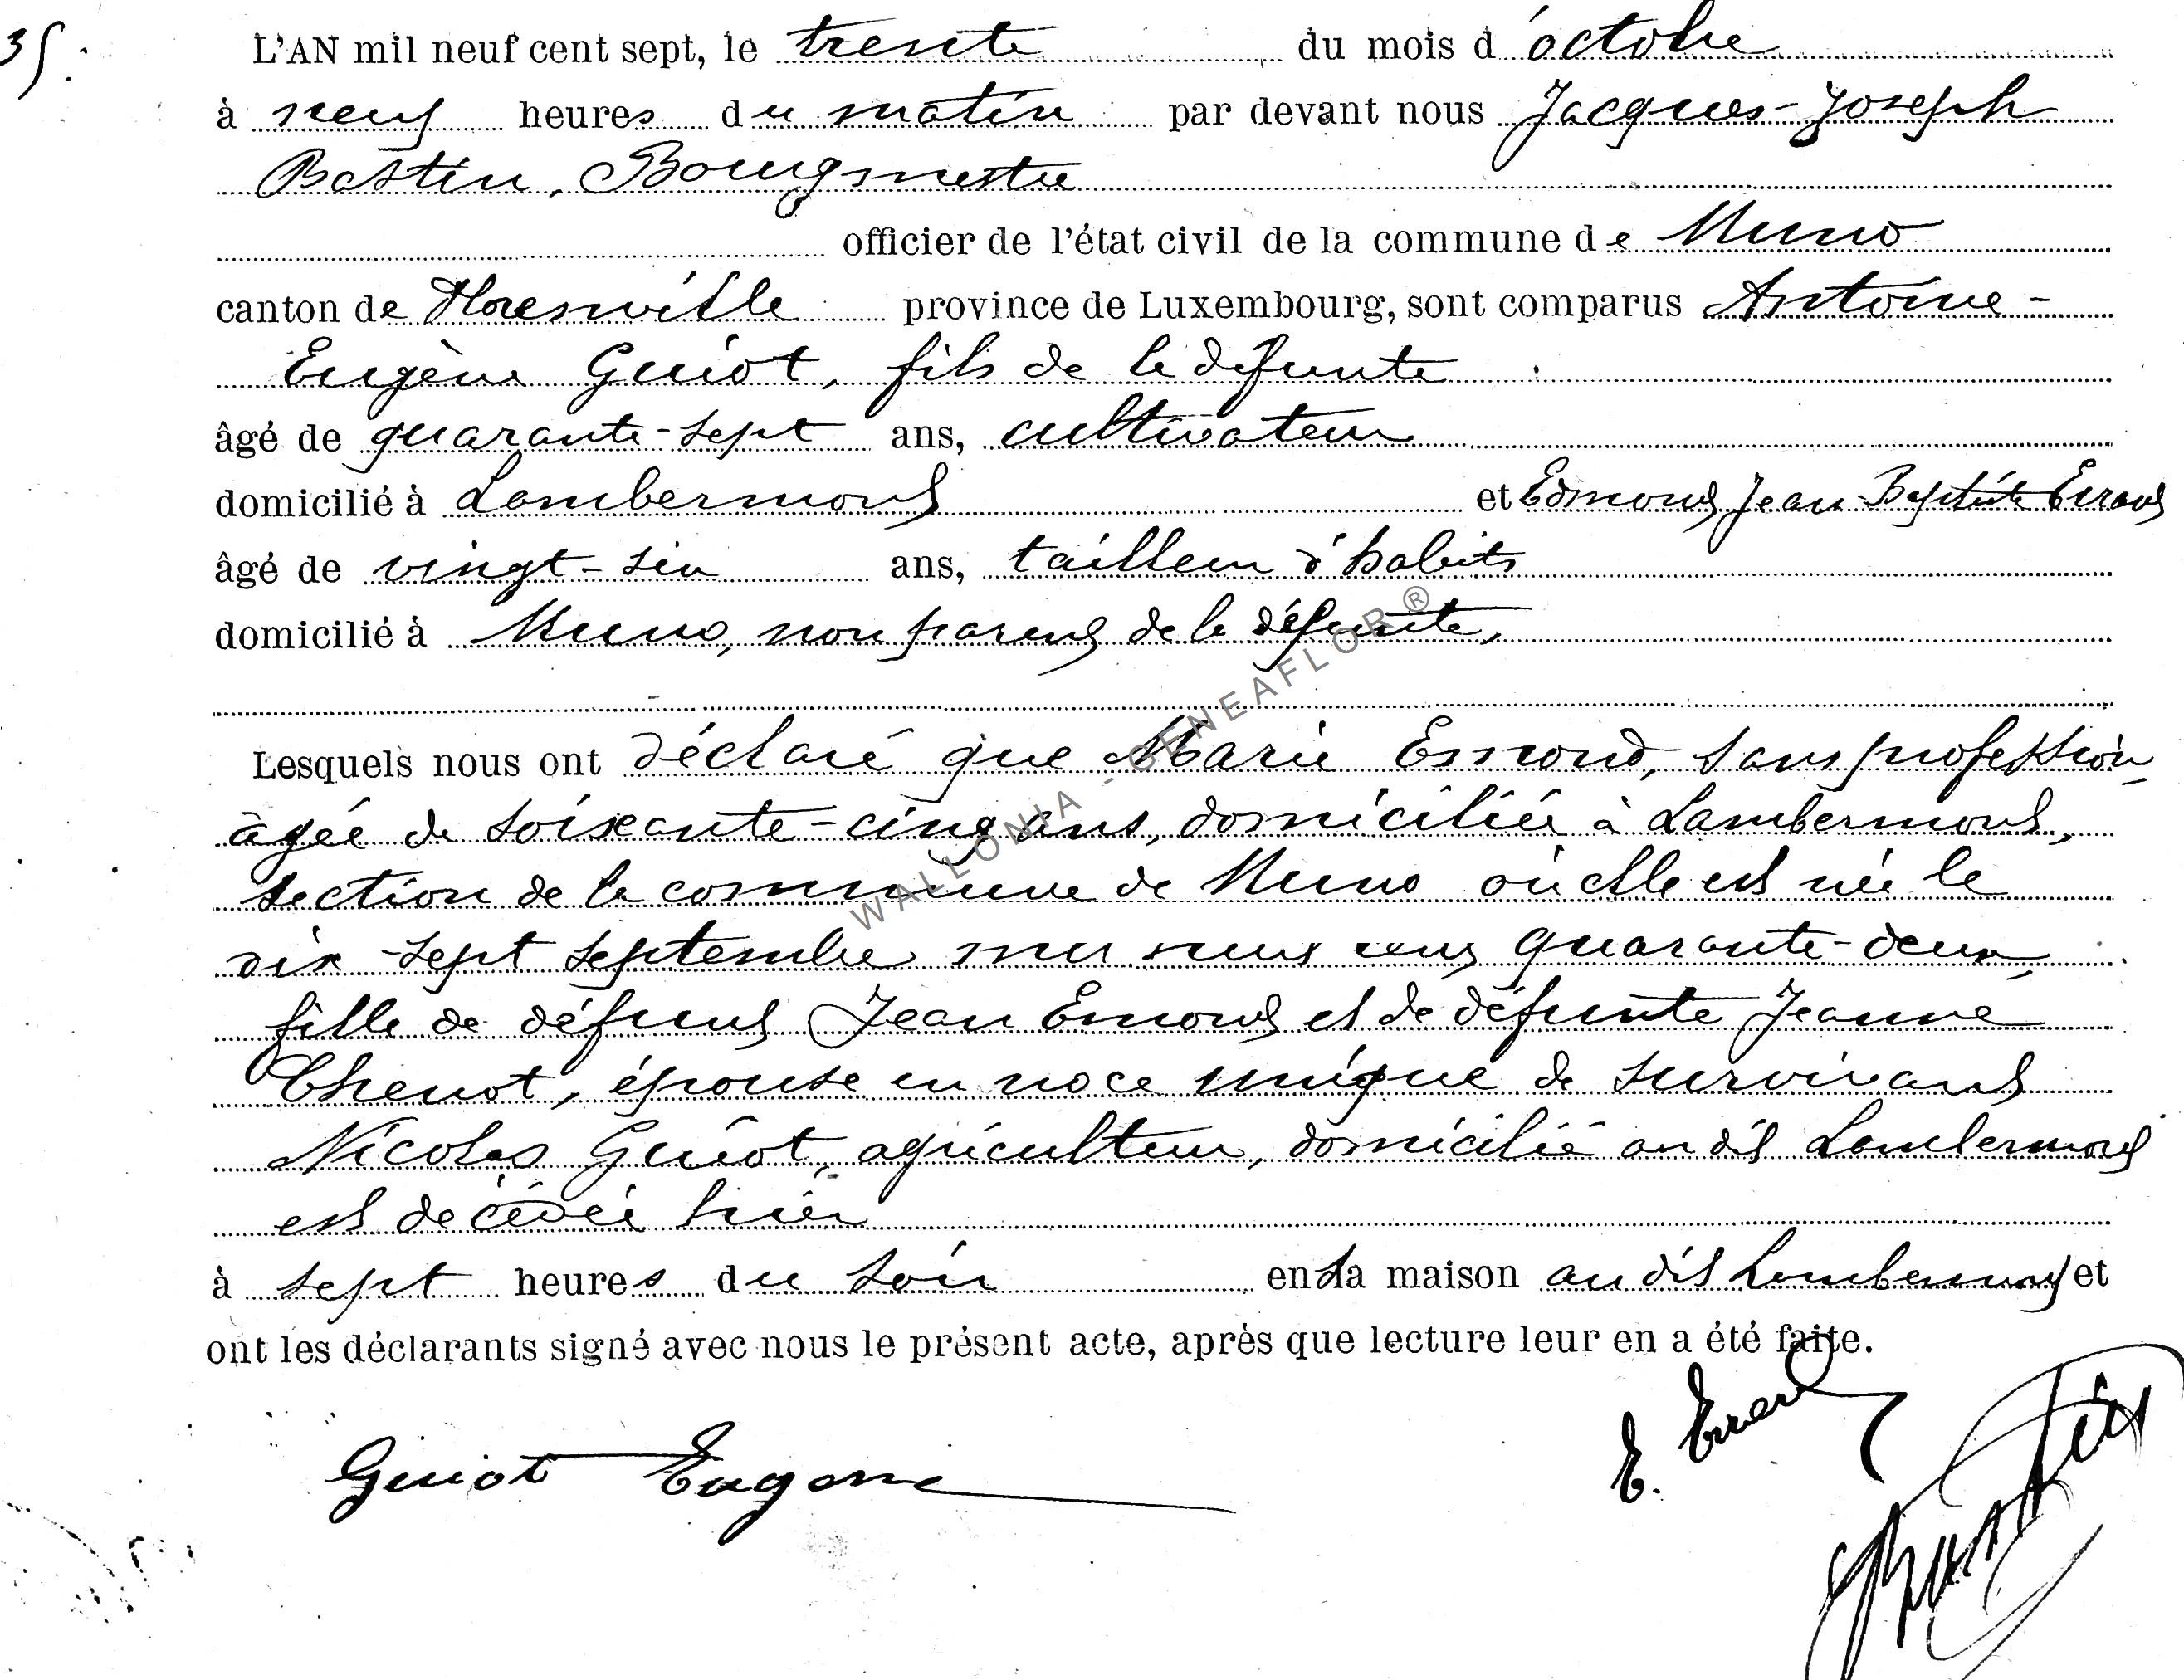 35.
L'AN mil neuf cent sept, le trente du mois d'octobre
à neuf heures du matin par devant nous Jacques-Joseph
Bastin, Bourgmestre
officier de l'état civil de la commune de Muno
canton de Florenville province de Luxembourg, sont comparus Antoine-
Eugène Guiot, fils de la défunte
âgé de quarante-sept ans, cultivateur
domicilié à Lambermont et Edmond Jean-Baptiste Errard
âgé de vingt-six ans, tailleur d'habits
domicilié à Muno, non parent de la défunte,
Lesquels nous ont déclaré que Marie Emond, sans profession,
âgée de soixante-cinq ans, domiciliée à Lambermont,
section de la commune de Muno où elle est née le
dix-sept septembre mil cent quarante-deux,
fille de défunt Jean Emond et de défunte Jeanne
Thenot, épouse en noce unique de survivant
Nicolas Guiot, agriculteur, domicilié au dit Lambermont
est décédée hier
à sept heures du soir en sa maison au dit Lambermont et
ont les déclarants signé avec nous le présent acte, après que lecture leur en a été faite.
Guiot Eugene
E. Errard
Bastin
WALLONIA - GENEAFLOR®